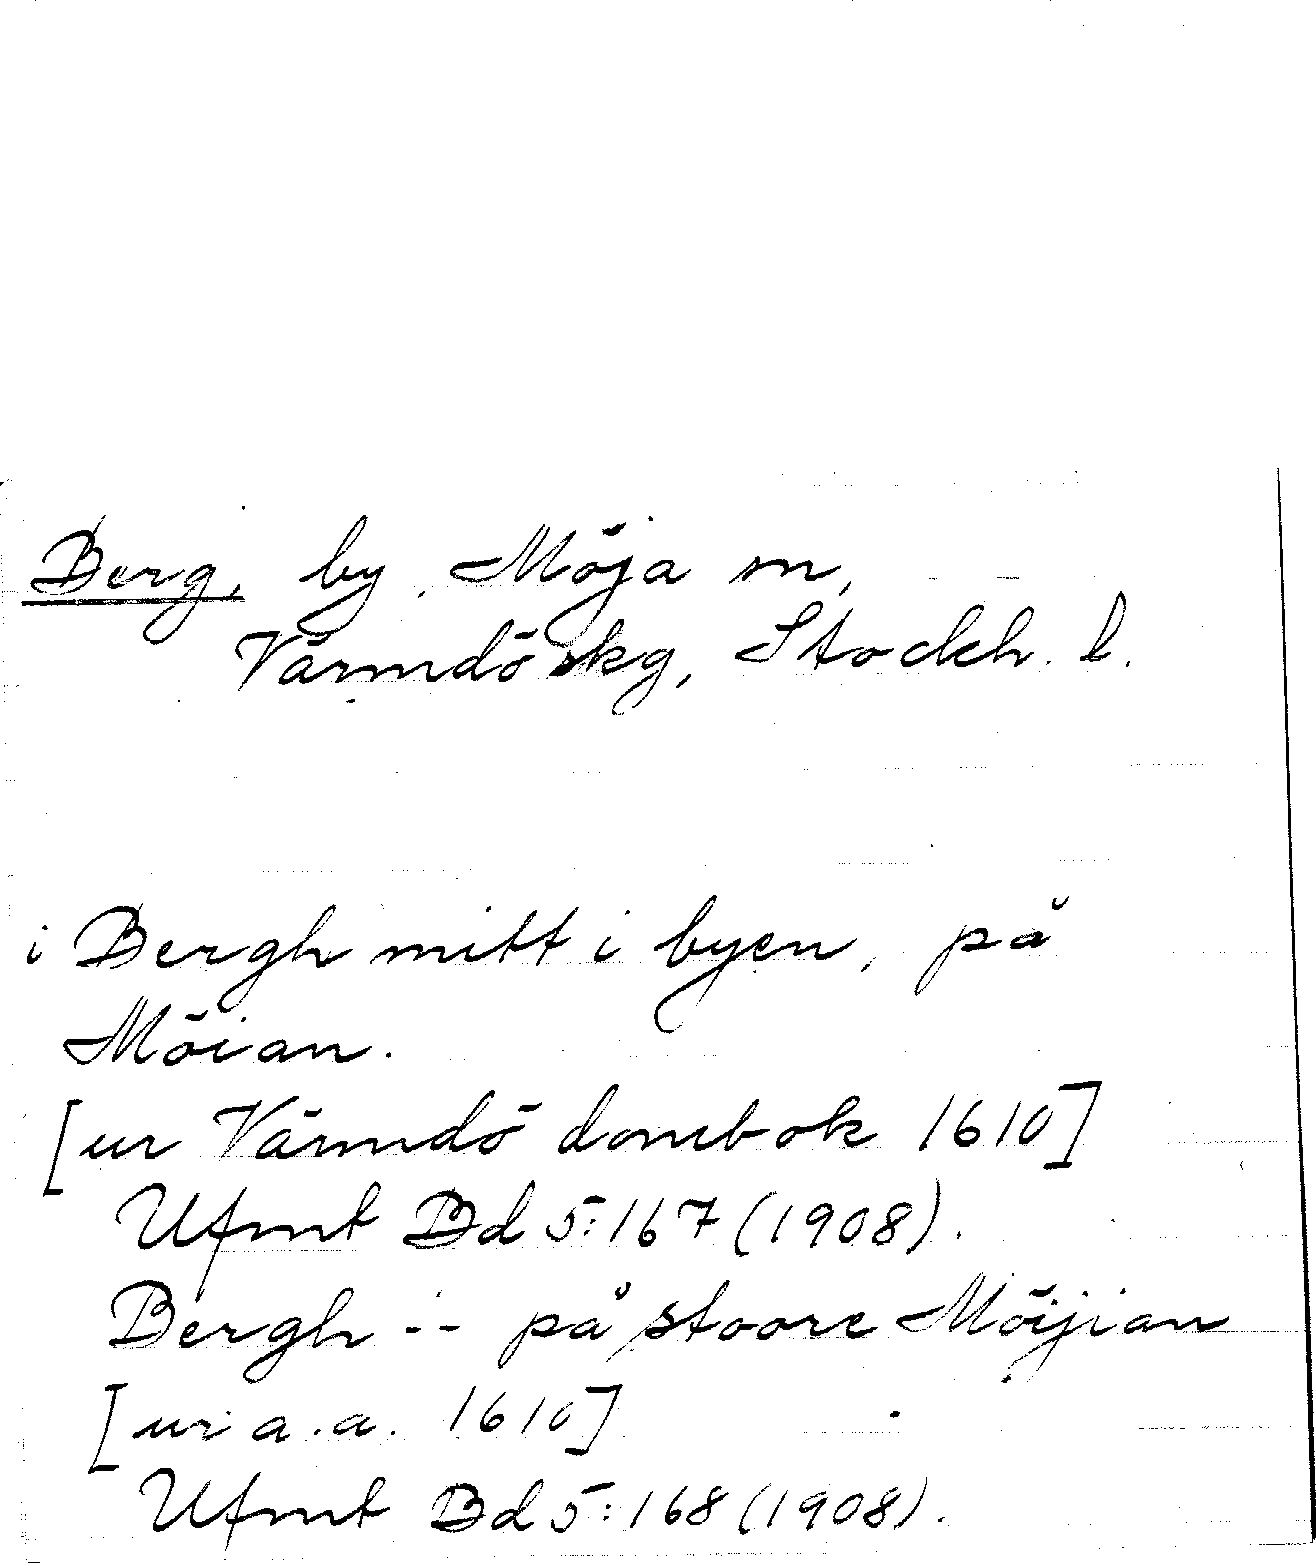 Berg, by, Möja sn,
Värmdö skg, Stockh. l.
i Bergh mitt i byen, på
Möian.
[ur Värmdö dombok 1610]
Ufmt Bd 5:167 (1908).
Bergh -- på stoore Möijian
[ur a.a. 1610]
Ufmt Bd 5:168 (1908).